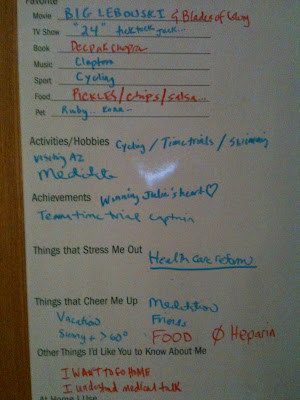 Favorite
Movie BIG LEBOWSKI & Blades of Glory
TV Show "24" tick tock tick...
Book Deepak Chopra
Music Clapton
Sport Cycling
Food PICKLES/chips/salsa...
Pet Ruby... Kona -
Activities/Hobbies Cycling / Time trials / swimming
visiting AZ
Meditate
Achievements Winning Julie's heart ♡
Team time trial captain
Things that Stress Me Out Health care reform
Things that Cheer Me Up Meditation
Vacation Friends
Sunny + > 60° FOOD Ø Heparin
Other Things I'd Like You to Know About Me
I WANT TO GO HOME
I understand medical talk
At Home I Use